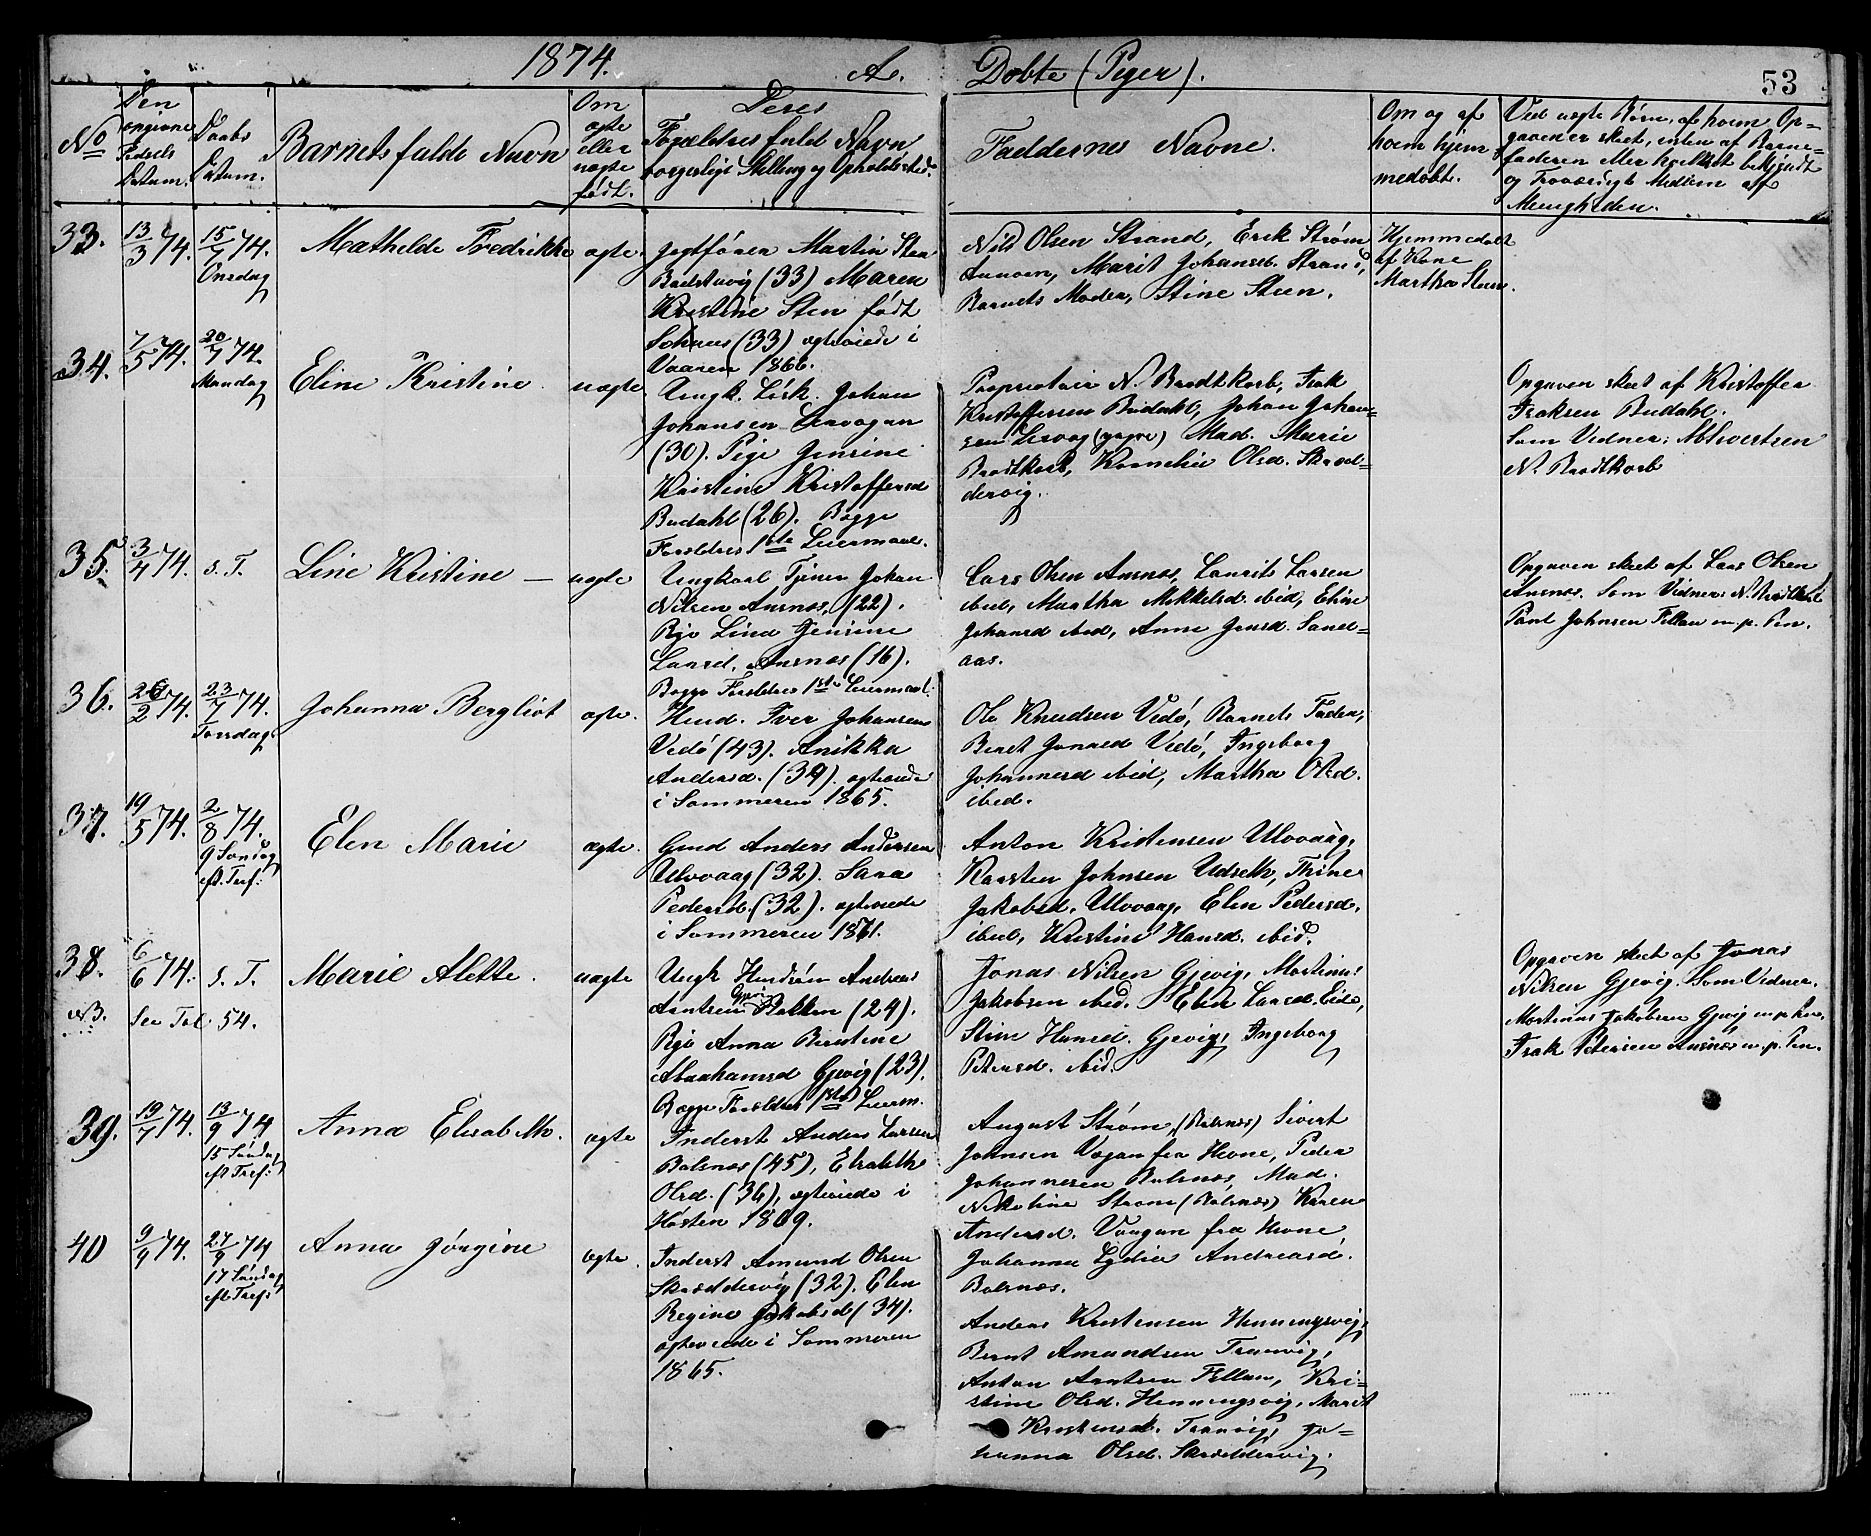 1874.
A.
Döbte (Piger).
53
No
Den opgivne Fødsels Datum.
Daabs Datum.
Barnets fulde Navn
Om ægte eller uægte født.
Deres Forældres fuld Navn borgerlige Stilling og Opholdssted.
Faddernes Navne.
Om og af hvem hjemmedøbt.
Ved uægte Børn, af hvem Opgaven er skeet, enten af Barnefaderen eller hvilket bekjendt og Troværdigt Medlem af Menigheden.
33.
13/3 74.
15/7 74.
Onsdag
Mathilde Fredrikke
ægte.
Jegtfører Martin Sten
Badstuvig (33) Maren
Kristine Sten født
(33) ægteviede i
Vaaren 1866.
Nils Olsen Strand, Erik Strøm
Marit Johansd. Strand,
Barnets Moder, Stine Steen.
Hjemmedøbt
af Kone
Martha Steen.
34.
7/5 74.
20/7 74.
Mandag
Eline Kristine
uægte
Ungk. Johan
Johansen
(30). Pige Jensine
Kristine Kristoffersd
Budahl (26). Begge
Forældres 1ste Leiermaal.
Proprietair N. Brodtkorb, Isak
Kristoffersen Budahl, Johan Johan=
sen Mad. Marie
Brodtkorb, Kornelia Olsd. Skræd=
dervig.
Opgaven skeet af Kristoffer
Isaksen Budahl.
Som Vidner: M Sivertsen
N. Brodtkorb
35.
3/4 74.
s. T.
Line Kristine —
uægte
Ungkarl Tjener Johan
Nilsen Ansnæs, (22).
Pige Lina Jensine
Larsd. Ansnæs (16).
Begge Forældres 1ste Leiermaal.
Lars Olsen Ansnæs, Laurits Larsen
ibid, Martha Mikkelsd. ibid, Eline
Johansd ibid, Anne Jensd. Sand=
aas.
Opgaven skeet af Lars Olsen
Ansnæs. Som Vidner: N. Brodtkorb
Paul Johnsen Fillan m. p. Pen.
36.
2 74.
23/7 74.
Torsdag
Johanna Bergliot
ægte.
Huusd. Iver Johansen
Vedö (43). Anikka
Andersd. (39). ægteviede
i Sommeren 1865.
Ole Knudsen Vedö, Barnets Fader,
Beret Jonsed Vedö, Ingeborg
Johannesd ibid, Martha Olsd.
ibid.
37.
19/5 74.
2/8 74.
9 Søndag
eft. Tref:
Elen Marie
ægte.
Gmd Anders Andersen
Ulvvaag (32). Sara
Pedersd. (32). ægteviede
i Sommeren 1871.
Anton Kristensen Ulvvaag,
Karsten Johnsen Udseth, Thine
Jakobsd. Ulvvaag, Elen Pedersd.
ibid, Kristine Hansd. ibid.
38.
6/6 74.
s. T.
NB.
See Fol. 54.
Marie Alette.
uægte
Ungk Andreas
Arntsen Bakken (24).
Pige Anna Berntine
Abrahamsd Gjevig (23).
Begge Forældres 1ste Leierm.
Jonas Nilsen Gjevig, Martinus
Jakobsen ibid. Elen Larsd. Eide,
Stine Hansd. Gjevig, Ingeborg
Petersd. ibid.
Opgaven skeet af Jonas
Nilsen Gjevig. Som Vidner.
Martinus Jakobsen Gjevig m. p. Pen,
Isak Petersen Ansnæs m. p. Pen.
39.
19/7 74.
13/9 74
15 Søndag
eft Tref:
Anna Elisabeth.
ægte
Inderst Anders Larsen
Balsnæs (45), Elisabeth
Olsd. (36), ægteviede i
Høsten 1869.
August Strøm, (Balsnæs) Sivert
Johnsen Vågan fra Hevne, Peder
Johannesen Balsnæs, Mad.
Nikoline Strøm (Balsnæs) Karen
Andersd. Vaagan fra Hevne
Johanna Lydia Andreasd.
Balsnæs.
40
9/9 74.
27/9 74
17 Søndag
eft Tref:
Anna Jörgine
ægte.
Inderst Amund Olsen
Skræddervig (32). Elen
Regine Jakobsd (34).
ægteviede i Sommeren
1865.
Anders Kristensen Henningsvig,
Bernt Amundsen Tranvig,
Anton Arntsen Fillan, Kri=
stine Olsd. Henningsvig, Marit
Kristensd. Tranvig, Jo=
hanna Olsd. Skræddervig.